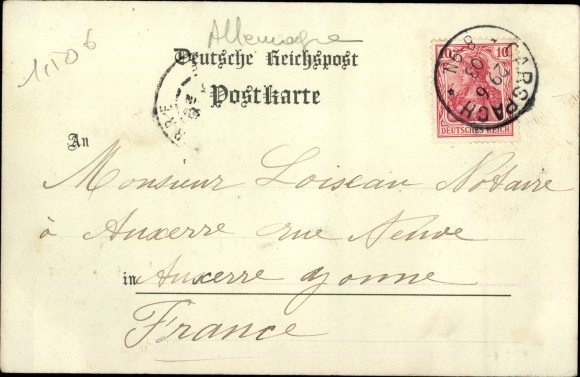 Allemagne
Deutsche Reichspost
Postkarte
10
DEUTSCHES REICH
CARSPACH
29 6
03
8-9N
RRE
An
Monsieur Loiseau Notaire
à Auxerre rue Neuve
in Auxerre Yonne
France